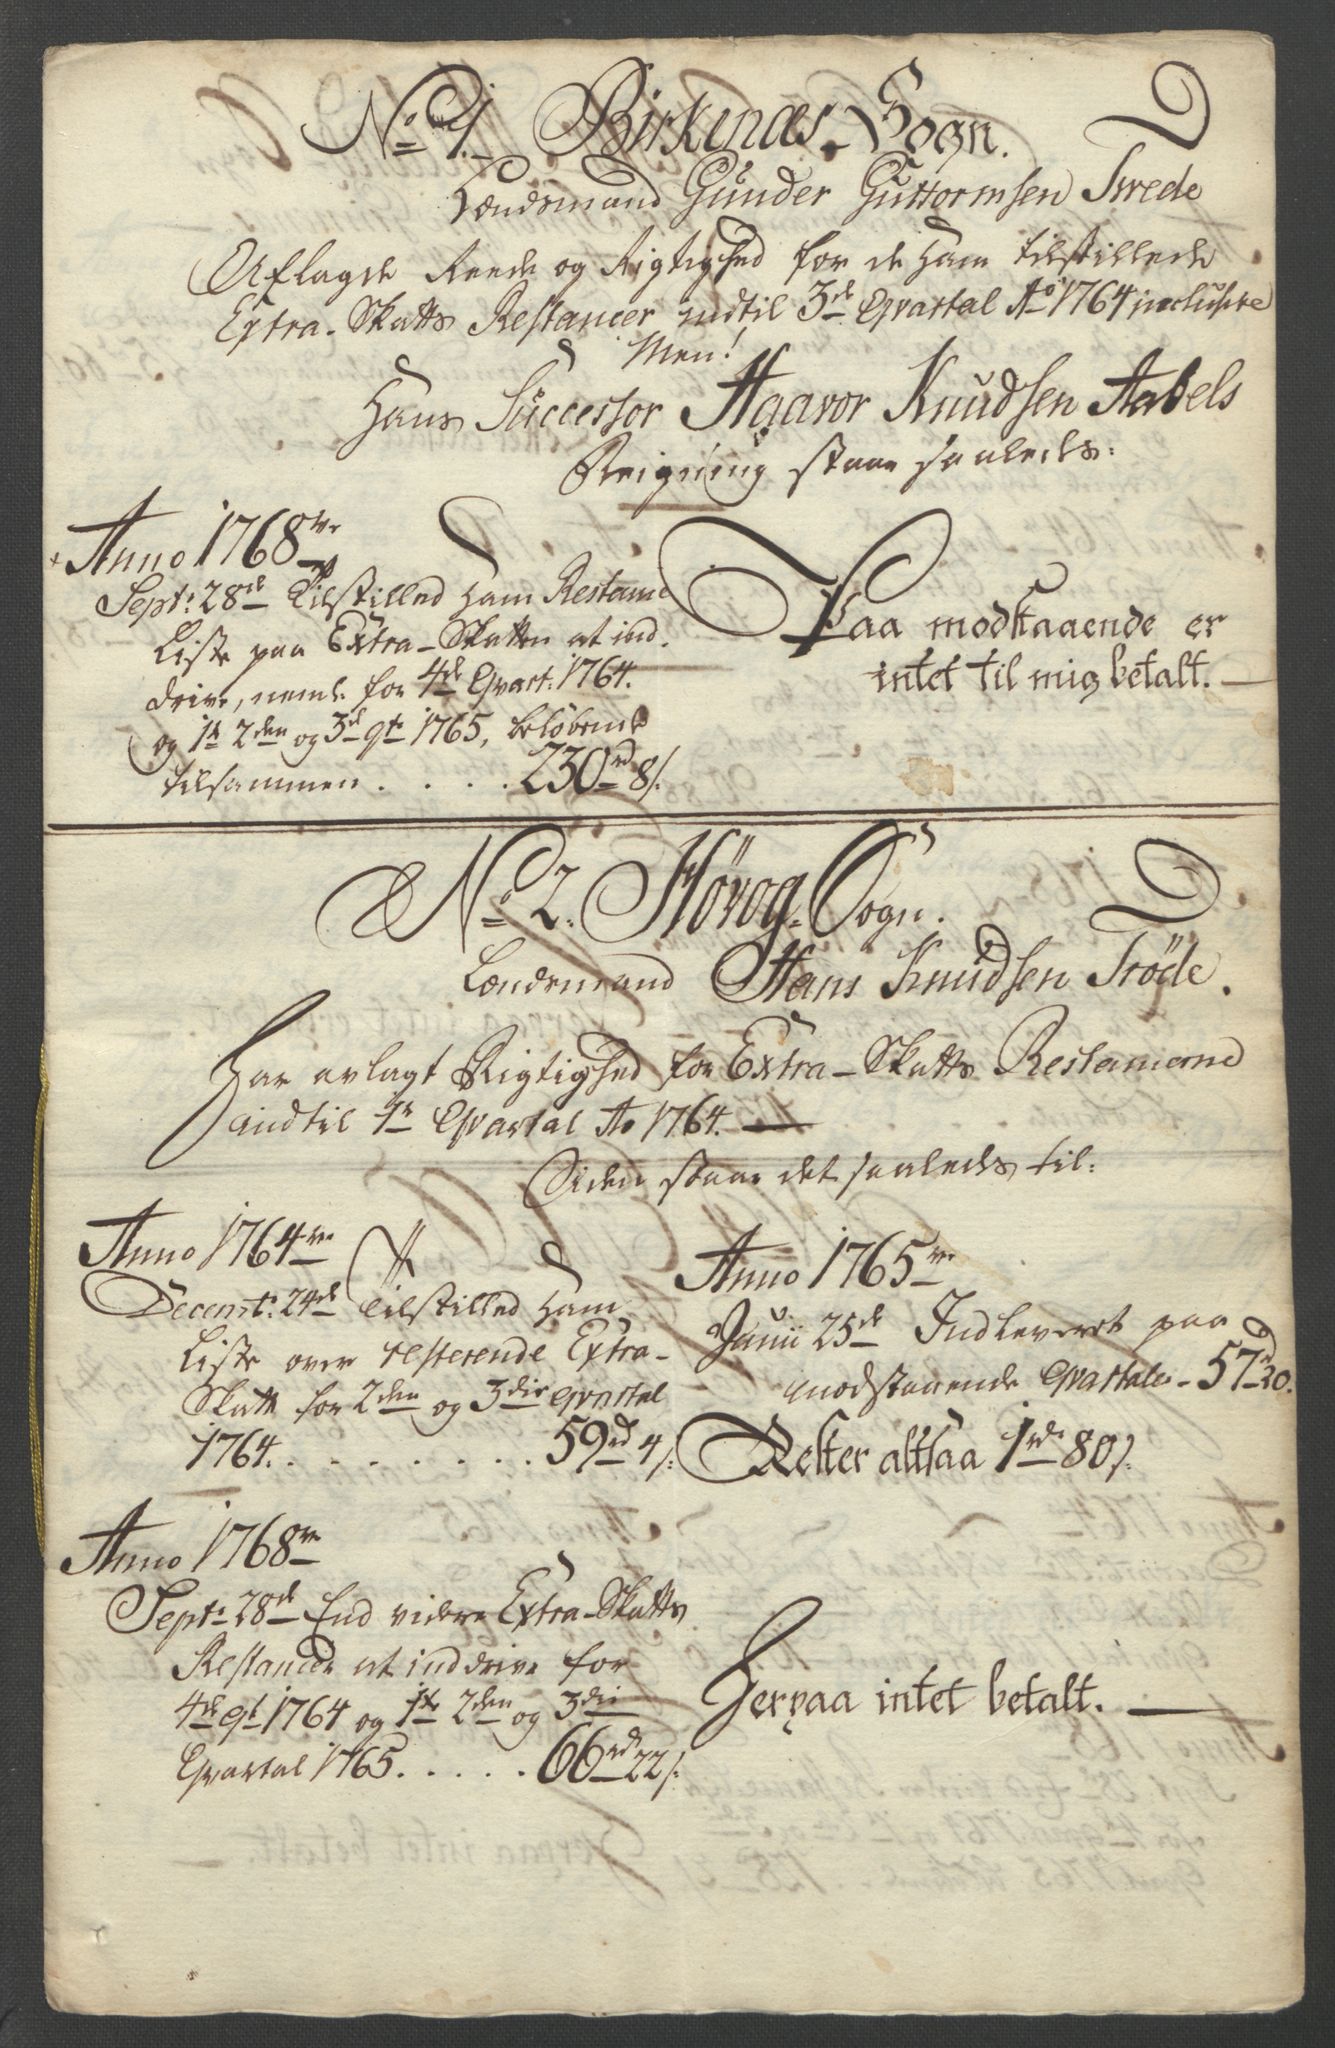 No 1. Birkenæs Sogn.
Lændsmand Gunder Guttormsen Tvede
Aflagde Reede og Rigtighed for de ham tilstillede
Extra-Skatts Restancer indtil 3de Qvartal Ao 1764 inclusive
Men!
Hans Successor Haavor Knudsen Aabels
Reigning staar saaleds:
Anno 1768ve
Septr 28de Tilstilled ham Restance
Liste paa Extra-Skatten at ind-
drive, neml. for 4de Qvart: 1764.
og 1te 2den og 3de qt. 1765, beløbende
tilsammen . . . . 230rd 8/.
Paa modstaaende er
intet til mig betalt.
No 2. Høvog Sogn.
Lændsmand Hans Knudsen Trøde.
Har avlagt Rigtighed for Extra-Skatts Restancerne
indtil 1te Qvartal Ao 1764.
Siden staar det saaleds til:
Anno 1764ve
Decembr. 24de Tilstilled ham
Liste over resterende Extra-
Skatt for 2den og 3die qvartal
1764. . . . . . . . 59rd 4/.
Anno 1765ve
Junii 25de Indleveret paa
modstaaende Qvartaler - 57rd 20.
Rester altsaa 1rdr 80/.
Anno 1768ve
Septr 28de End videre Extra-Skatts
Restancer at inddrive for
4de qt 1764 og 1te 2den og 3die
Qvartal 1765. . . . . . 66rd 22/.
Herpaa intet betalt.